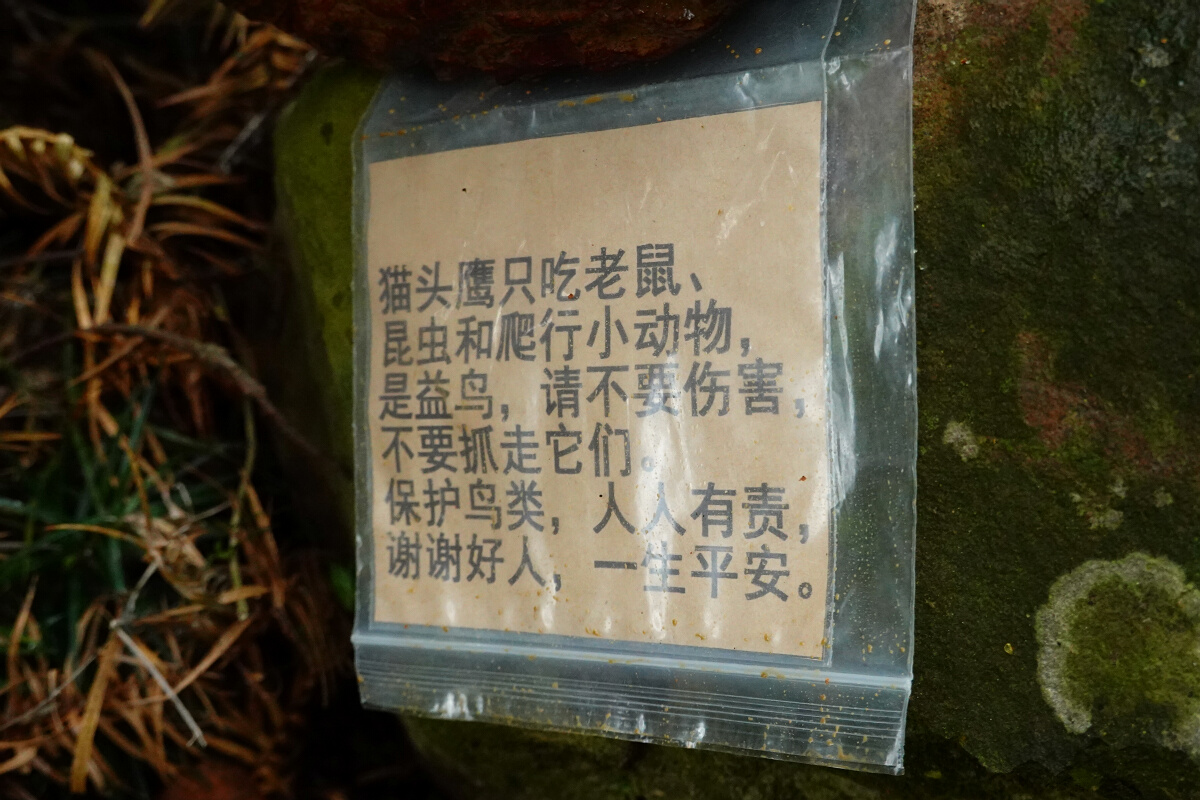 猫头鹰只吃老鼠、
昆虫和爬行小动物，
是益鸟，请不要伤害，
不要抓走它们。
保护鸟类，人人有责，
谢谢好人，一生平安。